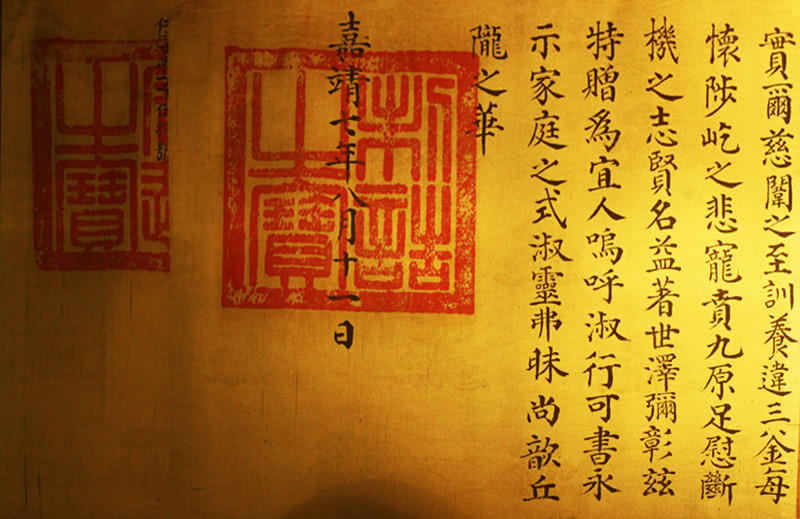 實爾慈闈之至訓養違三釜每
懷陟屺之悲寵賁九原足慰斷
機之志賢名益著世澤彌彰茲
特贈爲宜人嗚呼淑行可書永
示家庭之式淑靈弗昧尚歆丘
隴之華
嘉靖七年八月十一日
制誥之寶
之寶